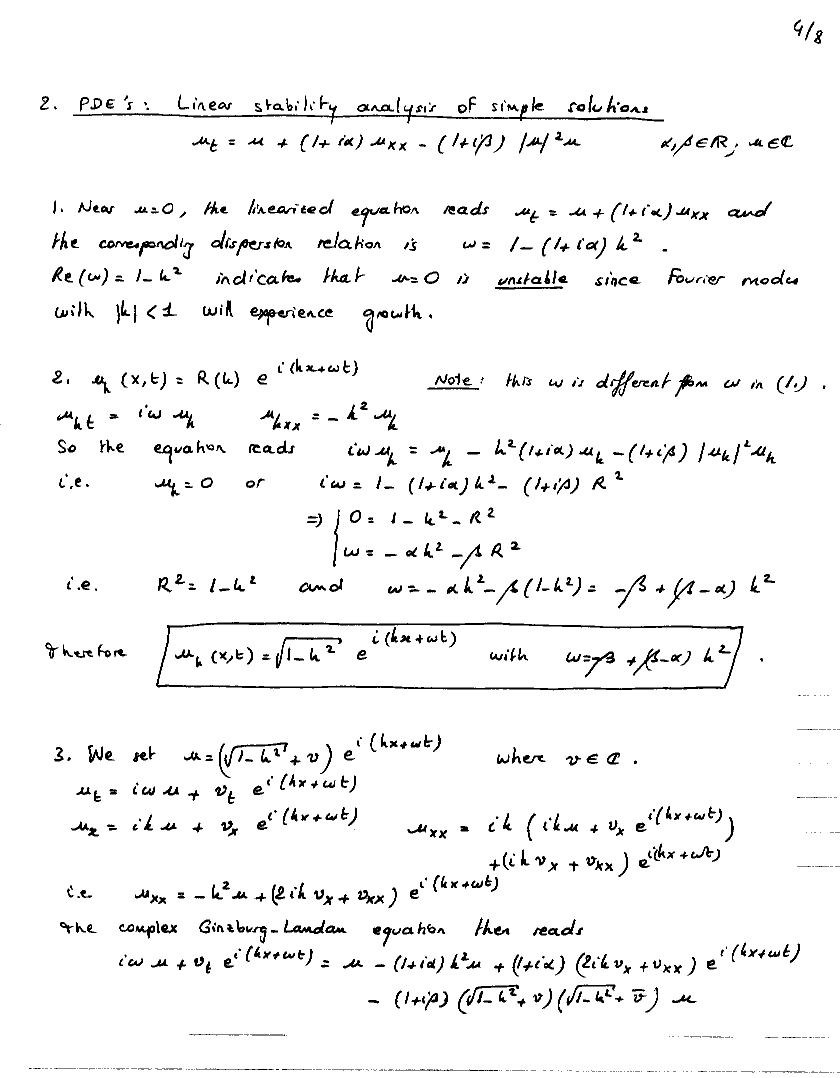 4/8
2. PDE's: Linear stability analysis of simple solutions
u_t = u + (1+iα) u_xx - (1+iβ) |u|²u   α,β∈ℝ; u∈ℂ
1. Near u=0, the linearized equation reads u_t = u + (1+iα) u_xx and
the corresponding dispersion relation is ω = 1-(1+iα) k².
Re(ω) = 1-k² indicates that u=0 is unstable since Fourier modes
with |k|<1 will experience growth.
2. u_k (x,t) = R(k) e^{i(kx+ωt)}   Note: this ω is different from ω in (1.).
u_kt = iω u_k   u_kxx = -k² u_k
So the equation reads   iω u_k = u_k - k²(1+iα) u_k - (1+iβ) |u_k|² u_k
i.e.   u_k = 0 or   iω = 1-(1+iα)k² - (1+iβ) R²
⇒ { 0 = 1-k²-R²
ω = -αk² - βR²
i.e.   R² = 1-k² and ω = -αk² - β(1-k²) = -β + (β-α) k²
Therefore   u_k (x,t) = √(1-k²) e^{i(kx+ωt)} with ω = -β + (β-α) k².
3. We set u = (√(1-k²) + v) e^{i(kx+ωt)}   where v∈ℂ.
u_t = iω u + v_t e^{i(kx+ωt)}
u_x = ik u + v_x e^{i(kx+ωt)}   u_xx = ik (ik u + v_x e^{i(kx+ωt)})
+(ik v_x + v_xx) e^{i(kx+ωt)}
i.e   u_xx = -k² u + (2ik v_x + v_xx) e^{i(kx+ωt)}
The complex Ginzburg-Landau equation then reads
iω u + v_t e^{i(kx+ωt)} = u - (1+iα) k² u + (1+iα) (2ik v_x + v_xx) e^{i(kx+ωt)}
- (1+iβ) (√(1-k²) + v)(√(1-k²) + v̄) u